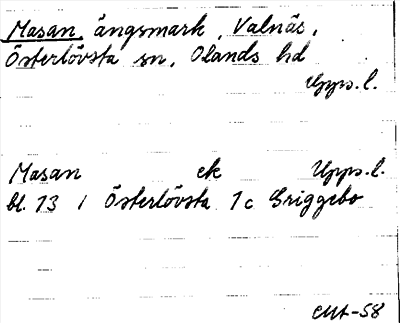 Masan, ängsmark, Valnäs,
Österlövsta sn, Olands hd
Upps.l.
Masan ek Upps.l.
bl. 13 i Österlövsta 1c Griggebo